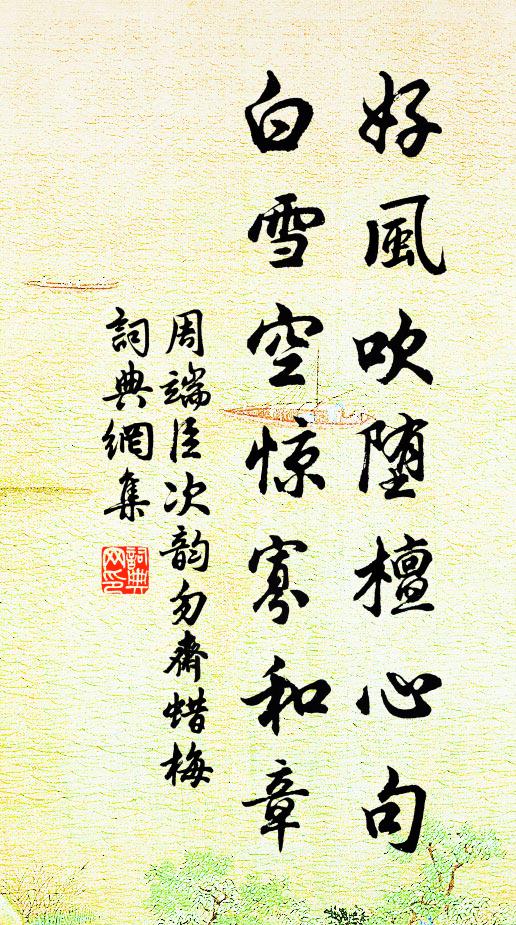 好風吹堕檀心句
白雪空惊寡和章
周端臣次韵勿齋蜡梅
詞典網集
詞典网印